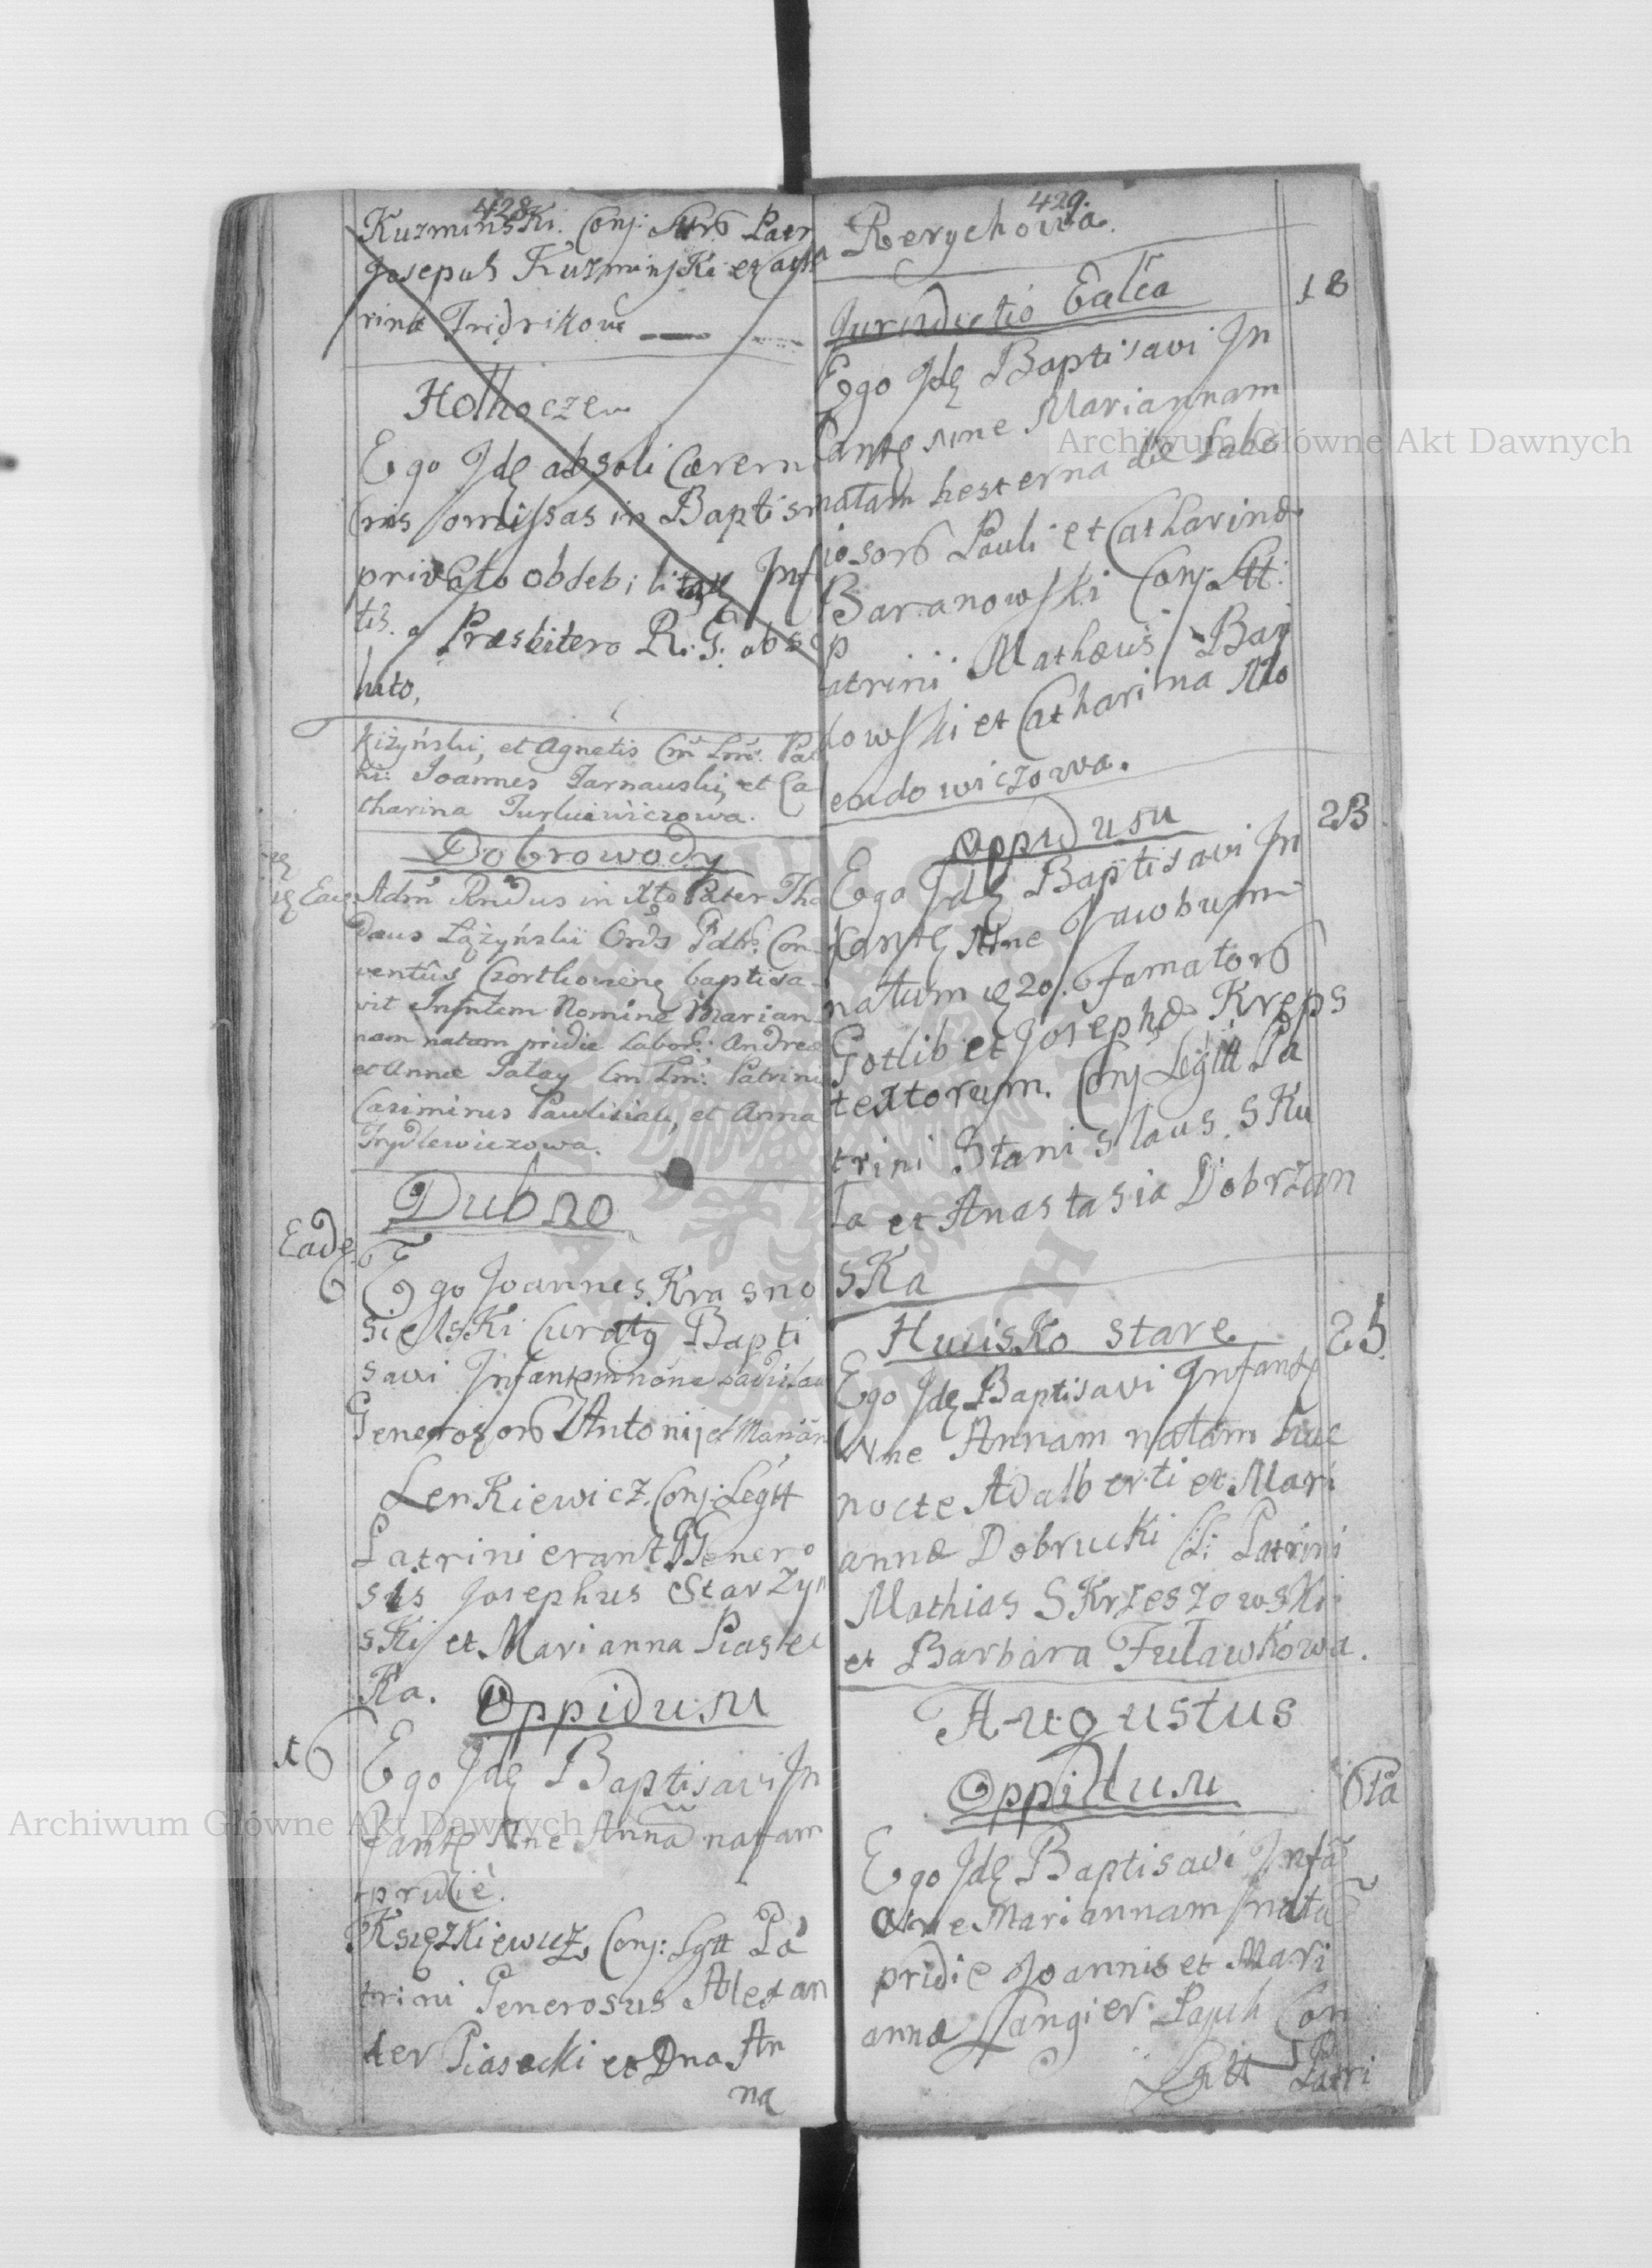 428
Kuzminski. Conj: Patr
Josephus Kuzminski et Catha
rina Fridrikowa
Holhocze
Ego Idē absoli Cærem
omissas in Baptism
privato ob debilitatē Inf
tis. a Præsbitero R. G. abso
luto,
Kiżyński, et Agnetis Cm̄ Lm̄: Pat
Joannes Tarnauski, et Ca
tharina Turkiewiczowa.
Dobrowody
Eadē Adm̄ Rn̄dus in Xto Pater Tha
Dæus Łążyński Ord̄s Con
ventûs baptisa
vit Infntem Nomine Marian
nam natam pridie Labor: Andreæ
et Annæ Patay Cm̄ Lm̄: Patrini
Casimirus Pawlisiak, et Anna
Frydlewiczowa.
Dubno
Eadē
Ego Joannes Krasno
sielski Curatg Bapti
savi Infantem nōne
Generosorō Antonij et Mariān
Lenkiewicz. Conj: Legtt
Patrini erant Genero
sus Josephus Starzyn
ski et Marianna Piasec
Ka.
Oppidum
16
Ego Idē Baptisavi In
fantē Nne Annā natam
pridie.
Księżkiewicz, Conj: Lgtt Pa
trini Generosus Alexan
der Piasecki et Dna An
na
429.
Rerychowa.
Jurisdictio Ealca
18
Ego Idē Baptisavi In
fantē nne Mariannam
natam hesterna die Labo
iosorō Pauli et Catharinæ
Baranowski Conj Ltt:
P
atrini Mathæus Bay
kowski et Catharina Mo
endowiczowa.
Oppidum
23
Ego Idē Baptisavi In
fantē Nne Jacobum
natum 20. Famatorō
Gotlib et Josephæ Kreps
textorum. Conj Legitt Pa
trini Stanislaus Sku
la et Anastasia Dobrzan
sKa
Huuisko stare
25
Ego Idē Baptisavi Infantē
Nne Annam natam hac
nocte Adalberti et Mari
annæ Dobrucki Patrini
Mathias SKrzeszowski
et Barbara Futawkowa.
Augustus
Oppidum
6ta
Ego Idē Baptisavi Infā
Nne Mariannam natā
pridie Joannis et Mari
annæ Langier Con
Lgitt Patri
Archiwum Główne Akt Dawnych
Archiwum Główne Akt Dawnych